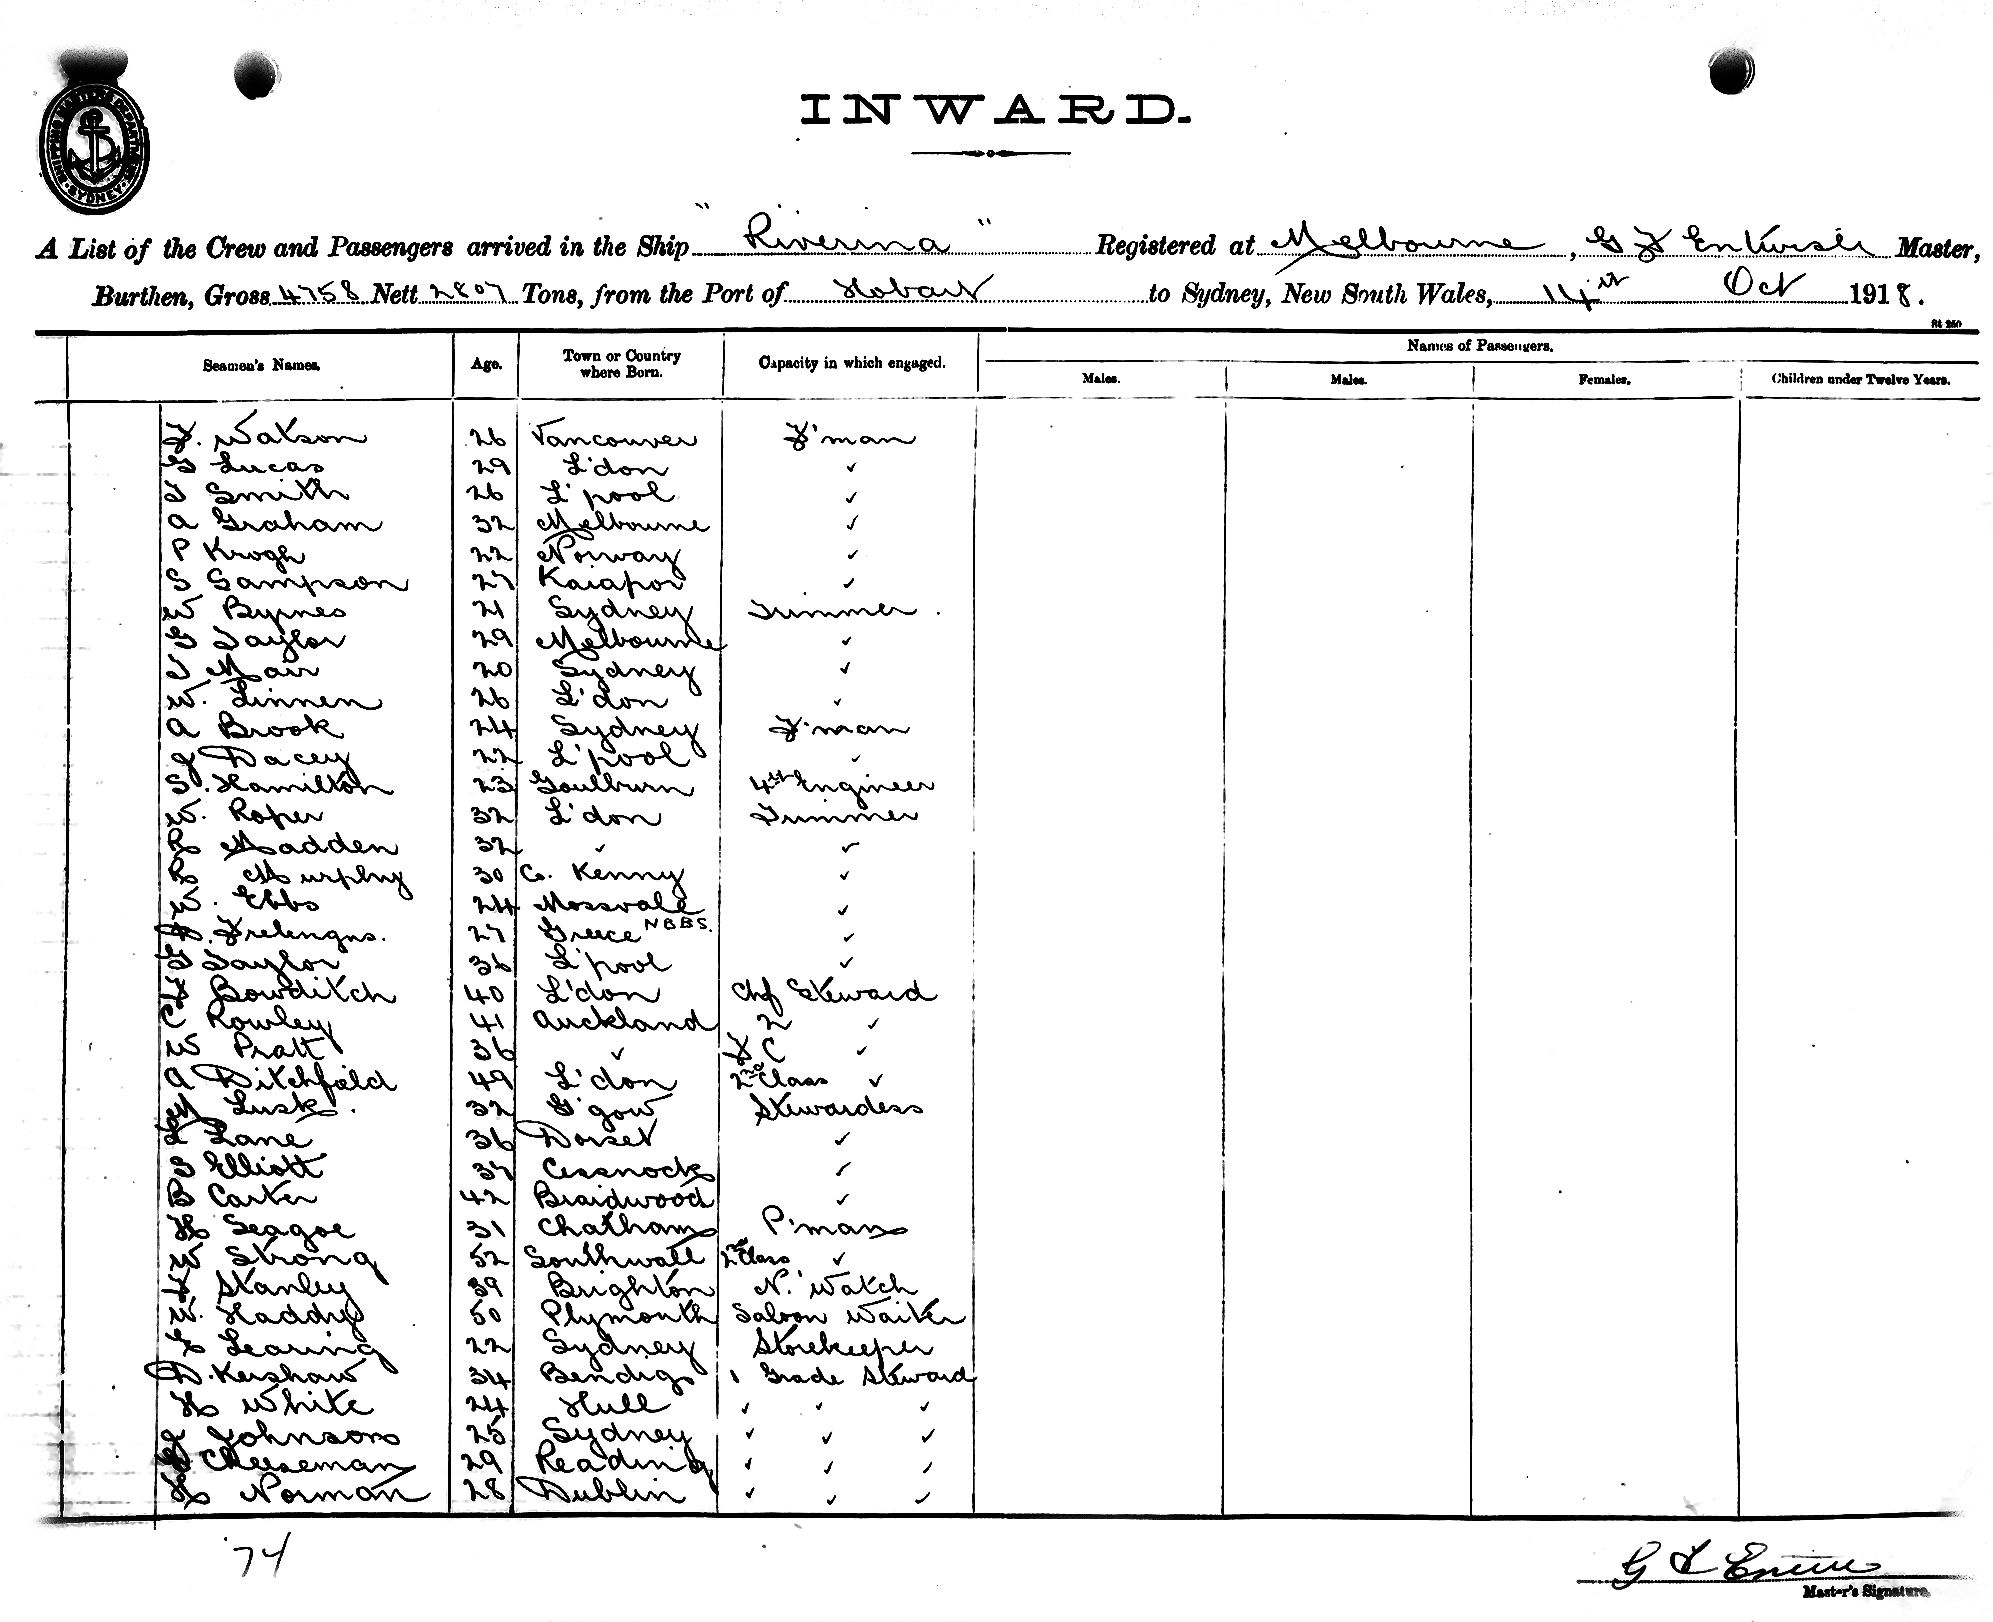 SHIPPING MASTER'S DEPARTMENT SYDNEY
INWARD.
A List of the Crew and Passengers arrived in the Ship "Riverina" Registered at Melbourne, G F Entwisle Master,
Burthen, Gross 4758 Nett 2807 Tons, from the Port of Hobart to Sydney, New South Wales, 14th Oct 1918.
Seamen's Names. Age. Town or Country where Born. Capacity in which engaged. Names of Passengers.
Males. Males. Females. Children under Twelve Years.
F. Watson 26 Vancouver F'man
G Lucas 29 L'don ✓
T Smith 26 L'pool ✓
A Graham 32 Melbourne ✓
P Krogh 22 Norway ✓
S Sampson 27 Kaiapoi ✓
W Byrnes 21 Sydney Trimmer
G Taylor 29 Melbourne ✓
T Mair 20 Sydney ✓
W. Linnen 26 L'don ✓
A Brook 24 Sydney F'man
J Dacey 22 L'pool ✓
S. Hamilton 23 Goulburn 4th Engineer
W. Roper 32 L'don Trimmer
R Madden 32 ✓ ✓
R Murphy 30 Co. Kenny ✓
W. Ebbs 24 Mossvale ✓
27 Greece NBBS. ✓
G Taylor 36 L'pool ✓
F Bowditch 40 L'don Chf Steward
C Rowley 41 Auckland 2 ✓
W Pratt 36 ✓ F C ✓
A Ditchfield 49 L'don 2nd Class ✓
M Lusk. 32 G'gow Stewardess
L Lane 36 Dorset ✓
S Elliott 37 Cessnock ✓
B Carter 42 Braidwood ✓
H Seagoe 31 Chatham P'man
W Strong 52 Southwall 2nd Class ✓
F Stanley 39 Brighton N. Watch
W. Haddy 50 Plymouth Saloon Waiter
Learing 22 Sydney Storekeeper
D. Kershaw 34 Bendigo 1 Grade Steward
H White 24 Hull ✓ ✓ ✓
J Johnson 25 Sydney ✓ ✓ ✓
Cheeseman 29 Reading ✓ ✓ ✓
H Norman 28 Dublin ✓ ✓ ✓
74
Master's Signature.